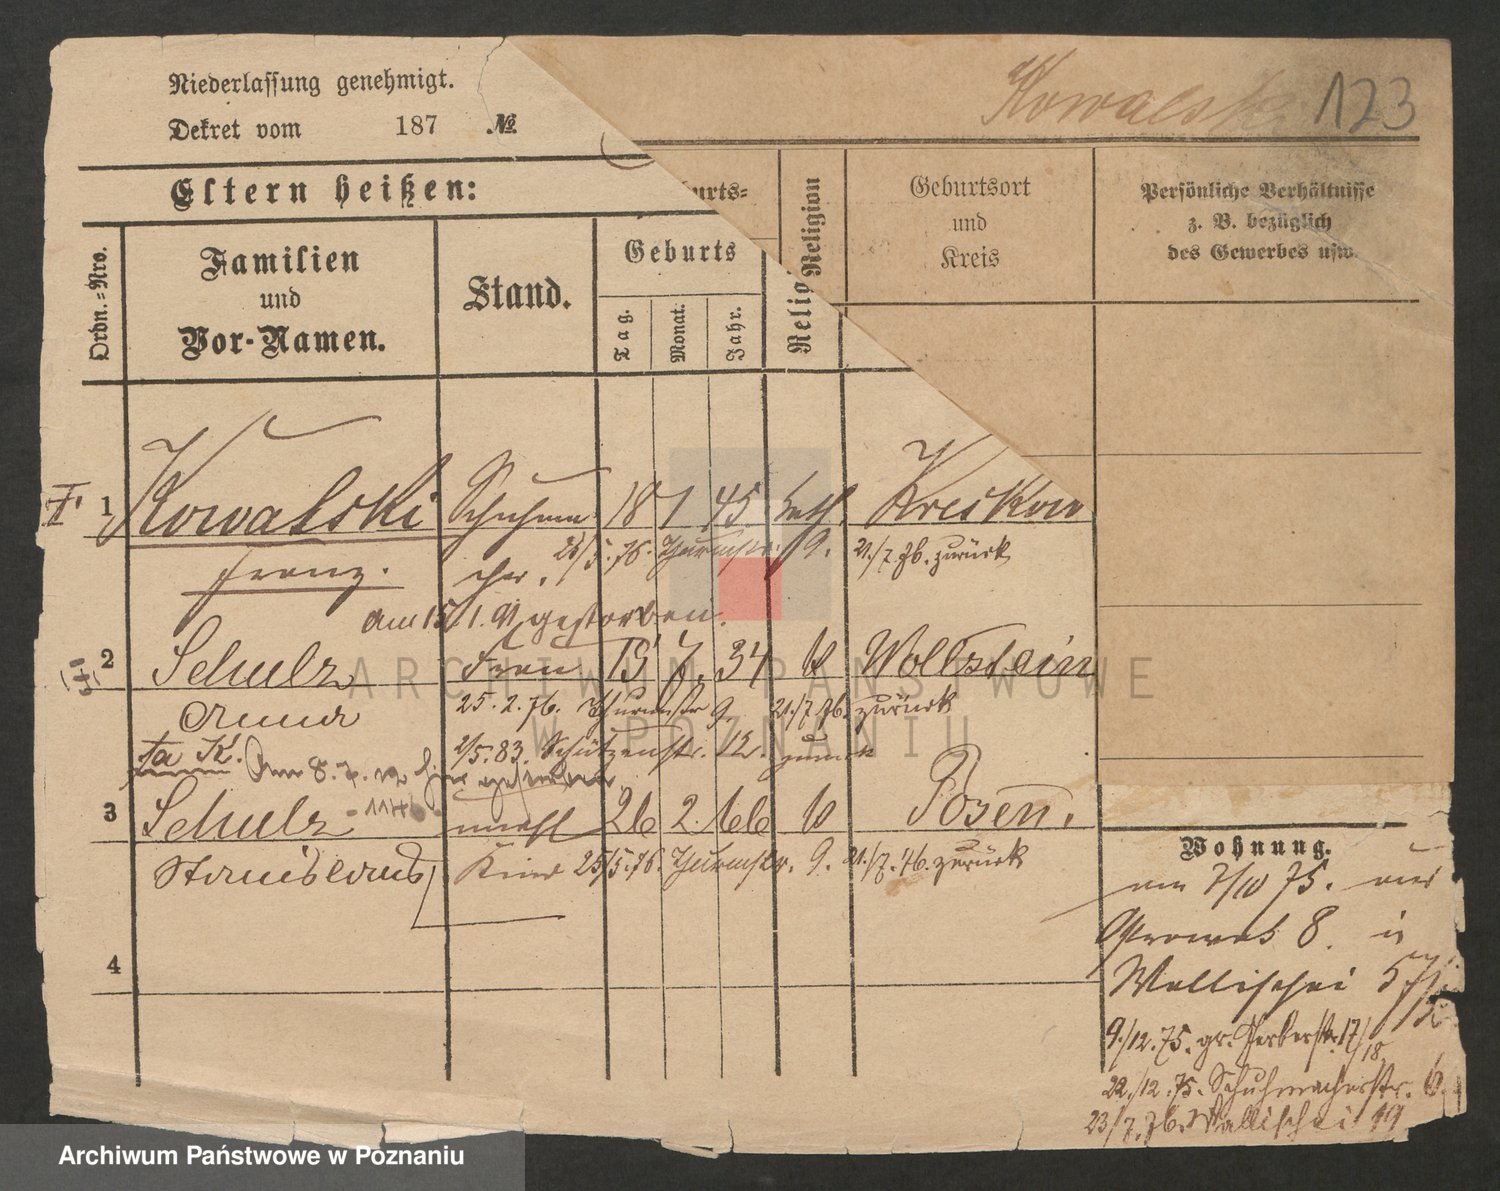 Niederlassung genehmigt.
Dekret vom 187 №
Kowalski 123
Eltern heißen:
urts=
Religion
Geburtsort
und
Kreis
Persönliche Verhältnisse
z. B. bezüglich
des Gewerbes usw.
Ordn.=Nro.
Familien
und
Vor-Namen.
Stand.
Geburts
Tag.
Monat.
Jahr.
Religio
I. 1 Kowalski Schuhma 18 1 45 kath. Kreis Kow
Franz. cher. 25/5. 76. Thurmstr. 9. 21./7. 76. zurück
am 15/1. 91 gestorben.
2 Schulz Frau 15 7. 34 k Wollstein
Anna 25. 2. 76. Thurmstr 9. 21./7. 76. zurück
2/5. 83. Schützenstr. 12. zurück
Am 8. 7. hier gestorben
3 Schulz unehl 26 2. 66 k Posen.
Stanislaus Kind 25/5. 76. Thurmstr. 9. 21./7. 76. zurück
4
Wohnung.
am 7/10 75. aus
Ostrowek 8. in
Wallischei 57/
9./12. 75. gr. Gerberstr. 17/18
22./12. 75. Schuhmacherstr. 6.
23/7. 76. Wallischei 19
ARCHIWUM PAŃSTWOWE
W POZNANIU
Archiwum Państwowe w Poznaniu